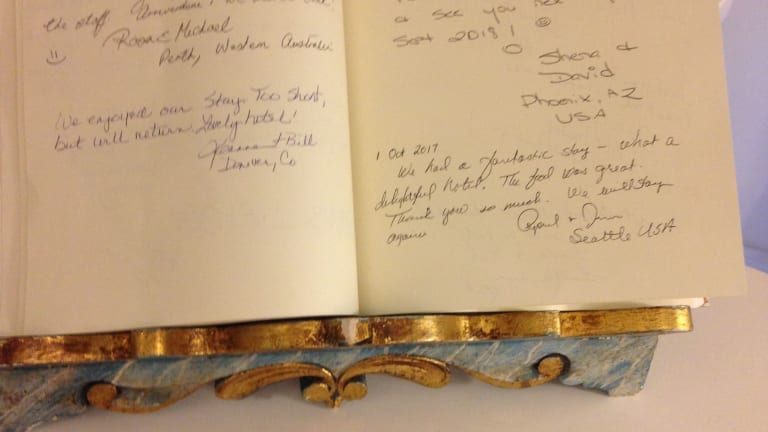 the staff.
Rosa & Michael
Perth, Western Australia
We enjoyed our stay. Too short,
but will return. Lovely hotel!
& Bill
Denver, Co
a see you
Sept 2018!
Shera &
David
Phoenix, AZ
USA
1 Oct 2017
We had a fantastic stay – what a
delightful hotel. The food was great.
Thank you so much. We will stay
again
Seattle USA